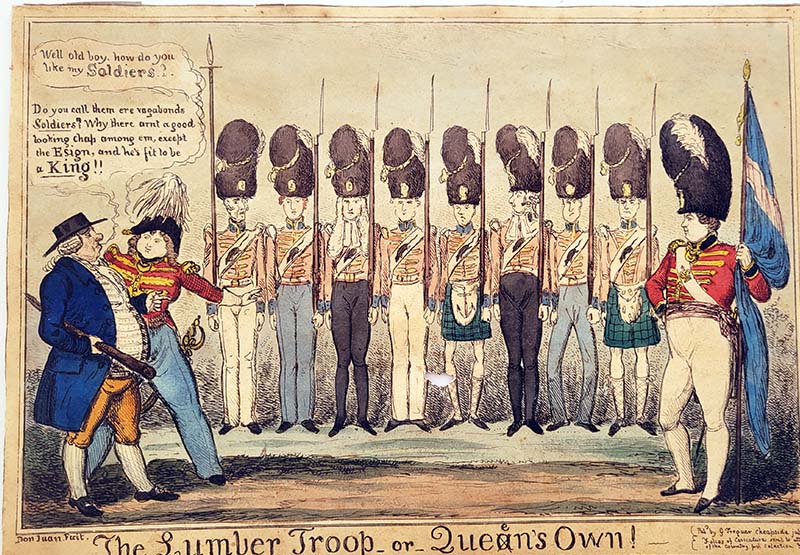 Well old boy, how do you
like my Soldiers?.
Do you call them ere vagabonds
Soldiers? Why there arnt a good
looking chap among em, except
the Esign, and he's fit to be
a King!!
Don Juan Fecit.
The Lumber Troop - or - Queen's Own!
Pubd by J. Fregear Cheapside
Folios of Caricature
the Country for